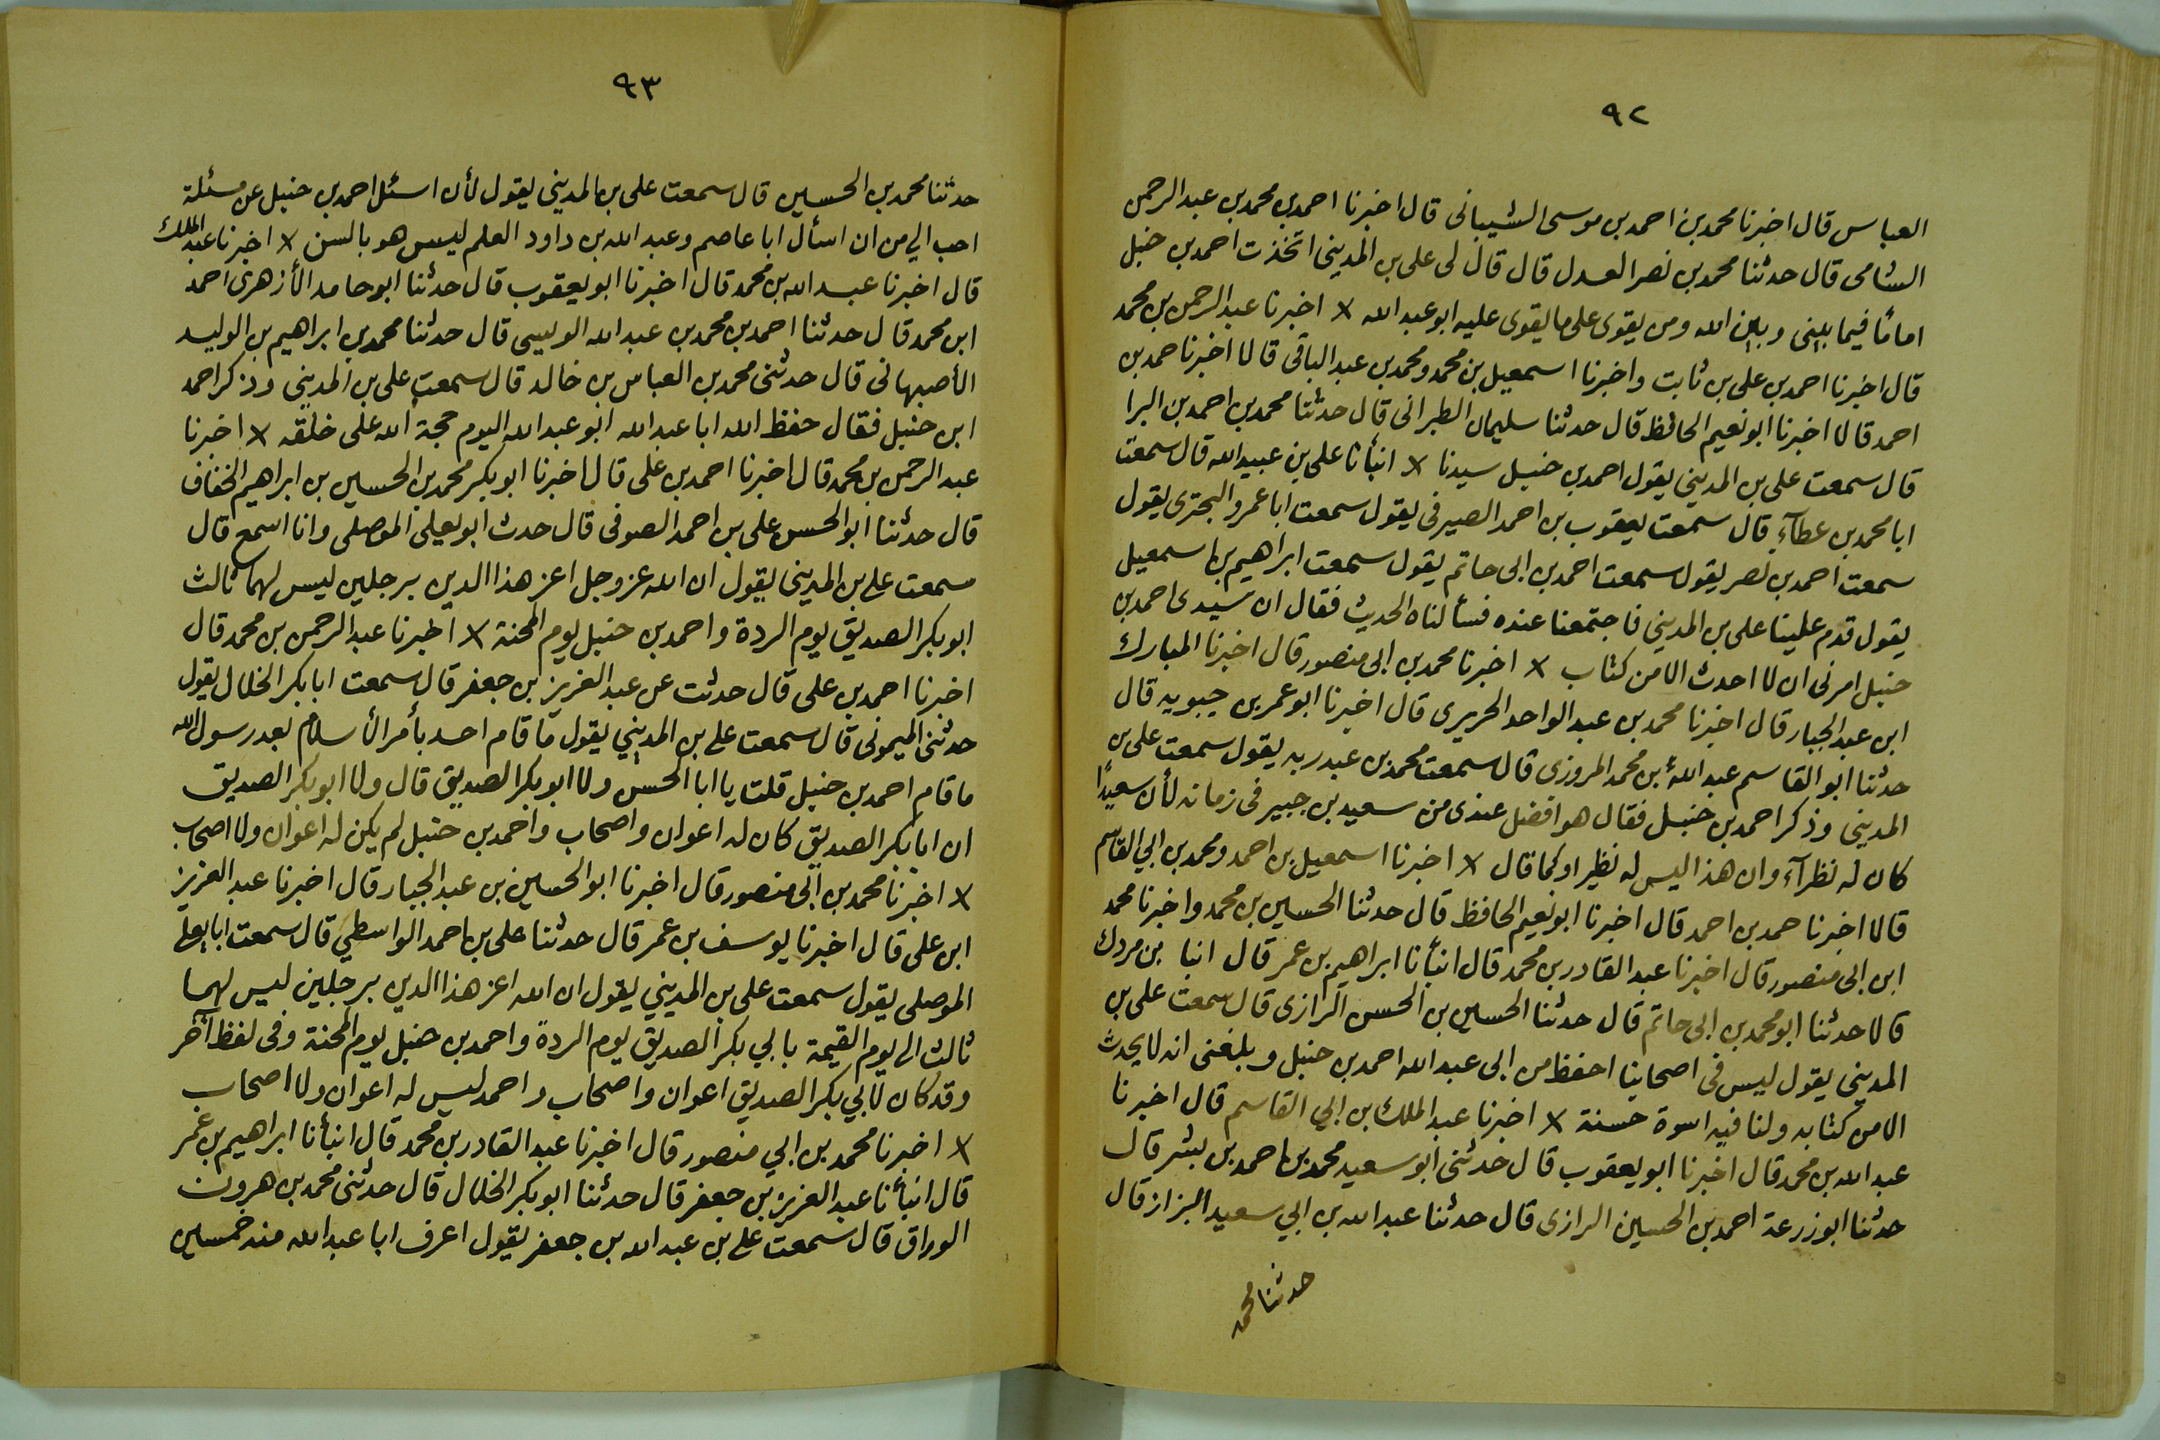 ٩٢
العباس قال اخبرنا محمد بن احمد بن موسى الشيبانى قال اخبرنا احمد بن محمد بن عبد الرحمن
الشامى قال حدثنا محمد بن نصر العدل قال قال لى على بن المدينى اتخذت احمد بن حنبل
اماما فيما بينى وبين الله ومن يقوى على ما يقوى عليه ابو عبد الله × اخبرنا عبد الرحمن بن محمد
قال اخبرنا احمد بن على بن ثابت واخبرنا اسمعيل بن محمد ومحمد بن عبد الباقى قالا اخبرنا حمد بن
احمد قالا اخبرنا ابو نعيم الحافظ قال حدثنا سليمان الطبرانى قال حدثنا محمد بن احمد بن البرا
قال سمعت على بن المدينى يقول احمد بن حنبل سيدنا × انبأنا على بن عبيد الله قال سمعت
ابا محمد بن عطآء قال سمعت يعقوب بن احمد الصيرفى يقول سمعت ابا عمرو البحترى يقول
سمعت احمد بن نصر يقول سمعت احمد بن ابى حاتم يقول سمعت ابراهيم بن اسمعيل
يقول قدم علينا على بن المدينى فاجتمعنا عنده فسألناه الحديث فقال ان سيدى احمد بن
حنبل امرنى ان لا احدث الا من كتاب × اخبرنا محمد بن ابى منصور قال اخبرنا المبارك
ابن عبد الجبار قال اخبرنا محمد بن عبد الواحد الحريرى قال اخبرنا ابو عمر بن حيويه قال
حدثنا ابو القاسم عبد الله بن محمد المروزى قال سمعت محمد بن عبدربه يقول سمعت على بن
المدينى وذكر احمد بن حنبل فقال هو افضل عندى من سعيد بن جبير فى زمانه لأن سعيدًا
كان له نظرآء وان هذا ليس له نظير او كما قال × اخبرنا اسمعيل بن احمد ومحمد بن ابي القاسم
قالا اخبرنا حمد بن احمد قال اخبرنا ابو نعيم الحافظ قال حدثنا الحسين بن محمد واخبرنا محمد
ابن ابى منصور قال اخبرنا عبد القادر بن محمد قال انبأنا ابراهيم بن عمر قال انبا بن مردك
قالا حدثنا ابو محمد بن ابى حاتم قال حدثنا الحسين بن الحسن الرازى قال سمعت على بن
المدينى يقول ليس فى اصحابنا احفظ من ابى عبد الله احمد بن حنبل وبلغنى انه لا يحدث
الا من كتابه ولنا فيه اسوة حسنة × اخبرنا عبد الملك بن ابي القاسم قال اخبرنا
عبد الله بن محمد قال اخبرنا ابو يعقوب قال حدثنى ابو سعيد محمد بن احمد بن بشر قال
حدثنا ابو زرعة احمد بن الحسين الرازى قال حدثنا عبد الله بن ابي سعيد البزاز قال
حدثنا محمد
٩٣
حدثنا محمد بن الحسين قال سمعت على بن المدينى يقول لأن اسئل احمد بن حنبل عن مسئلة
احب الي من ان اسأل ابا عاصم وعبد الله بن داود العلم ليس هو بالسن × اخبرنا عبد الملك
قال اخبرنا عبد الله بن محمد قال اخبرنا ابو يعقوب قال حدثنا ابو حامد الأزهرى احمد
ابن محمد قال حدثنا احمد بن محمد بن عبد الله الويسى قال حدثنا محمد بن ابراهيم بن الوليد
الأصبهانى قال حدثنى محمد بن العباس بن خالد قال سمعت على بن المدينى وذكر احمد
ابن حنبل فقال حفظ الله ابا عبد الله ابو عبد الله اليوم حجة الله على خلقه × اخبرنا
عبد الرحمن بن محمد قال اخبرنا احمد بن على قال اخبرنا ابو بكر محمد بن الحسين بن ابراهيم الخفاف
قال حدثنا ابو الحسن على بن احمد الصوفى قال حدث ابو يعلى الموصلى وانا اسمع قال
سمعت على بن المدينى يقول ان الله عز وجل اعز هذا الدين برجلين ليس لهما ثالث
ابو بكر الصديق يوم الردة واحمد بن حنبل يوم المحنة × اخبرنا عبد الرحمن بن محمد قال
اخبرنا احمد بن على قال حدثت عن عبد العزيز بن جعفر قال سمعت ابا بكر الخلال يقول
حدثنى الميمونى قال سمعت على بن المدينى يقول ما قام احد بأمر الأسلام بعد رسول الله
ما قام احمد بن حنبل قلت يا ابا الحسن ولا ابو بكر الصديق قال ولا ابو بكر الصديق
ان ابا بكر الصديق كان له اعوان واصحاب واحمد بن حنبل لم يكن له اعوان ولا اصحاب
× اخبرنا محمد بن ابى منصور قال اخبرنا ابو الحسين بن عبد الجبار قال اخبرنا عبد العزيز
ابن على قال اخبرنا يوسف بن عمر قال حدثنا على بن احمد الواسطي قال سمعت ابا يعلى
الموصلى يقول سمعت على بن المدينى يقول ان الله اعز هذا الدين برجلين ليس لهما
ثالث الى يوم القيمة بابي بكر الصديق يوم الردة واحمد بن حنبل يوم المحنة وفى لفظ آخر
وقد كان لأبي بكر الصديق اعوان واصحاب واحمد ليس له اعوان ولا اصحاب
× اخبرنا محمد بن ابي منصور قال اخبرنا عبد القادر بن محمد قال انبأنا ابراهيم بن عمر
قال انبأنا عبد العزيز بن جعفر قال حدثنا ابو بكر الخلال قال حدثنى محمد بن هرون
الوراق قال سمعت على بن عبد الله بن جعفر يقول اعرف ابا عبد الله منذ خمسين